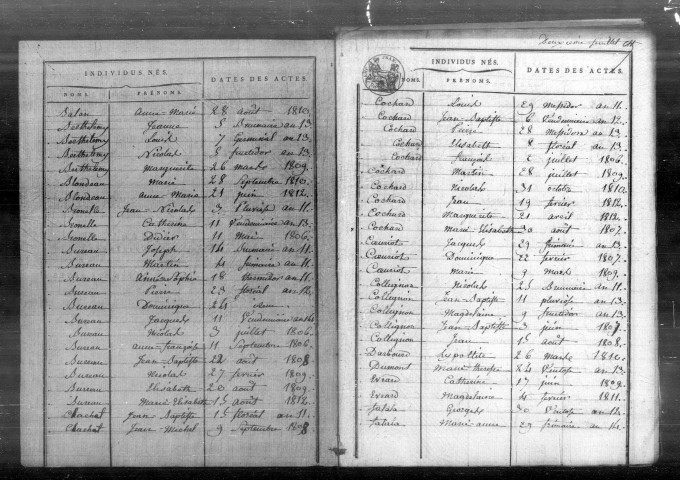 INDIVIDUS NÉS. DATES DES ACTES.
NOMS. PRÉNOMS.
Balan Anne-Marie 28 août 1810
Berthelemy Jeanne 5 Brumaire an 13
Berthelemy Louis 7 Germinal an 13
Berthelemy Nicolas 5 fructidor an 13
Berthelemy Marguerite 26 mars 1809
Blondeau Marie 28 Septembre 1810
Blondeau anne Maria 21 juin 1812
Jean-Nicolas 3 Pluviose an 11
Catherine 11 Vendemiaire an 13
Didier 11 Mai 1806
Bureau Joseph 14 Brumaire an 11
Bureau Martin 4 frimaire an 11
Bureau 18 Messidor an 11
Bureau Pierre 23 floréal an 12
Bureau Dominique 24 idem
Bureau Jacques 11 Vendemiaire an 14
Bureau Nicolas 3 juillet 1806
Bureau anne-françoise 11 Septembre 1806
Bureau Jean-Baptiste 22 août 1808
Bureau Nicolas 27 fevrier 1809
Bureau Elisabeth 20 août 1809
Bureau Marie Elisabeth 15 août 1812
Chachat Jean Baptiste 15 floréal an 11
Chachat Jean-Michel 9 Septembre 1808
Deuxième feuillet
INDIVIDUS NÉS. DATES DES ACTES.
NOMS. PRÉNOMS.
Cochard Louis 29 Messidor an 11
Cochard Jean-Baptiste 6 Vendemiaire an 12
Cochard Pierre 28 Messidor an 13
Cochard Elisabeth 8 floréal an 13
Cochard François 2 juillet 1806
Cochard Martin 28 juillet 1809
Cochard Nicolas 31 octobre 1810
Cochard Jean 19 fevrier 1812
Cochard Marguerite 21 avril 1812
Cochard Marie Elisabeth 30 août 1807
Cœuriot Jacques 29 frimaire an 13
Cœuriot Dominique 22 fevrier 1807
Cœuriot Marie 9 Mars 1809
Collignon Nicolas 25 Brumaire an 11
Collignon Jean-Baptiste 11 pluviose an 13
Collignon Magdelaine 9 fructidor an 13
Collignon Jean-Baptiste 3 juin 1807
Collignon Jean 15 août 1808
hypollite 26 Mars 1810
Dumont Marie Therese 24 Ventose an 12
Evrard Catherine 17 juin 1809
Evrard Magdelaine 4 fevrier 1811
Georges 30 Ventose an 12
Marie anne 29 frimaire an 14